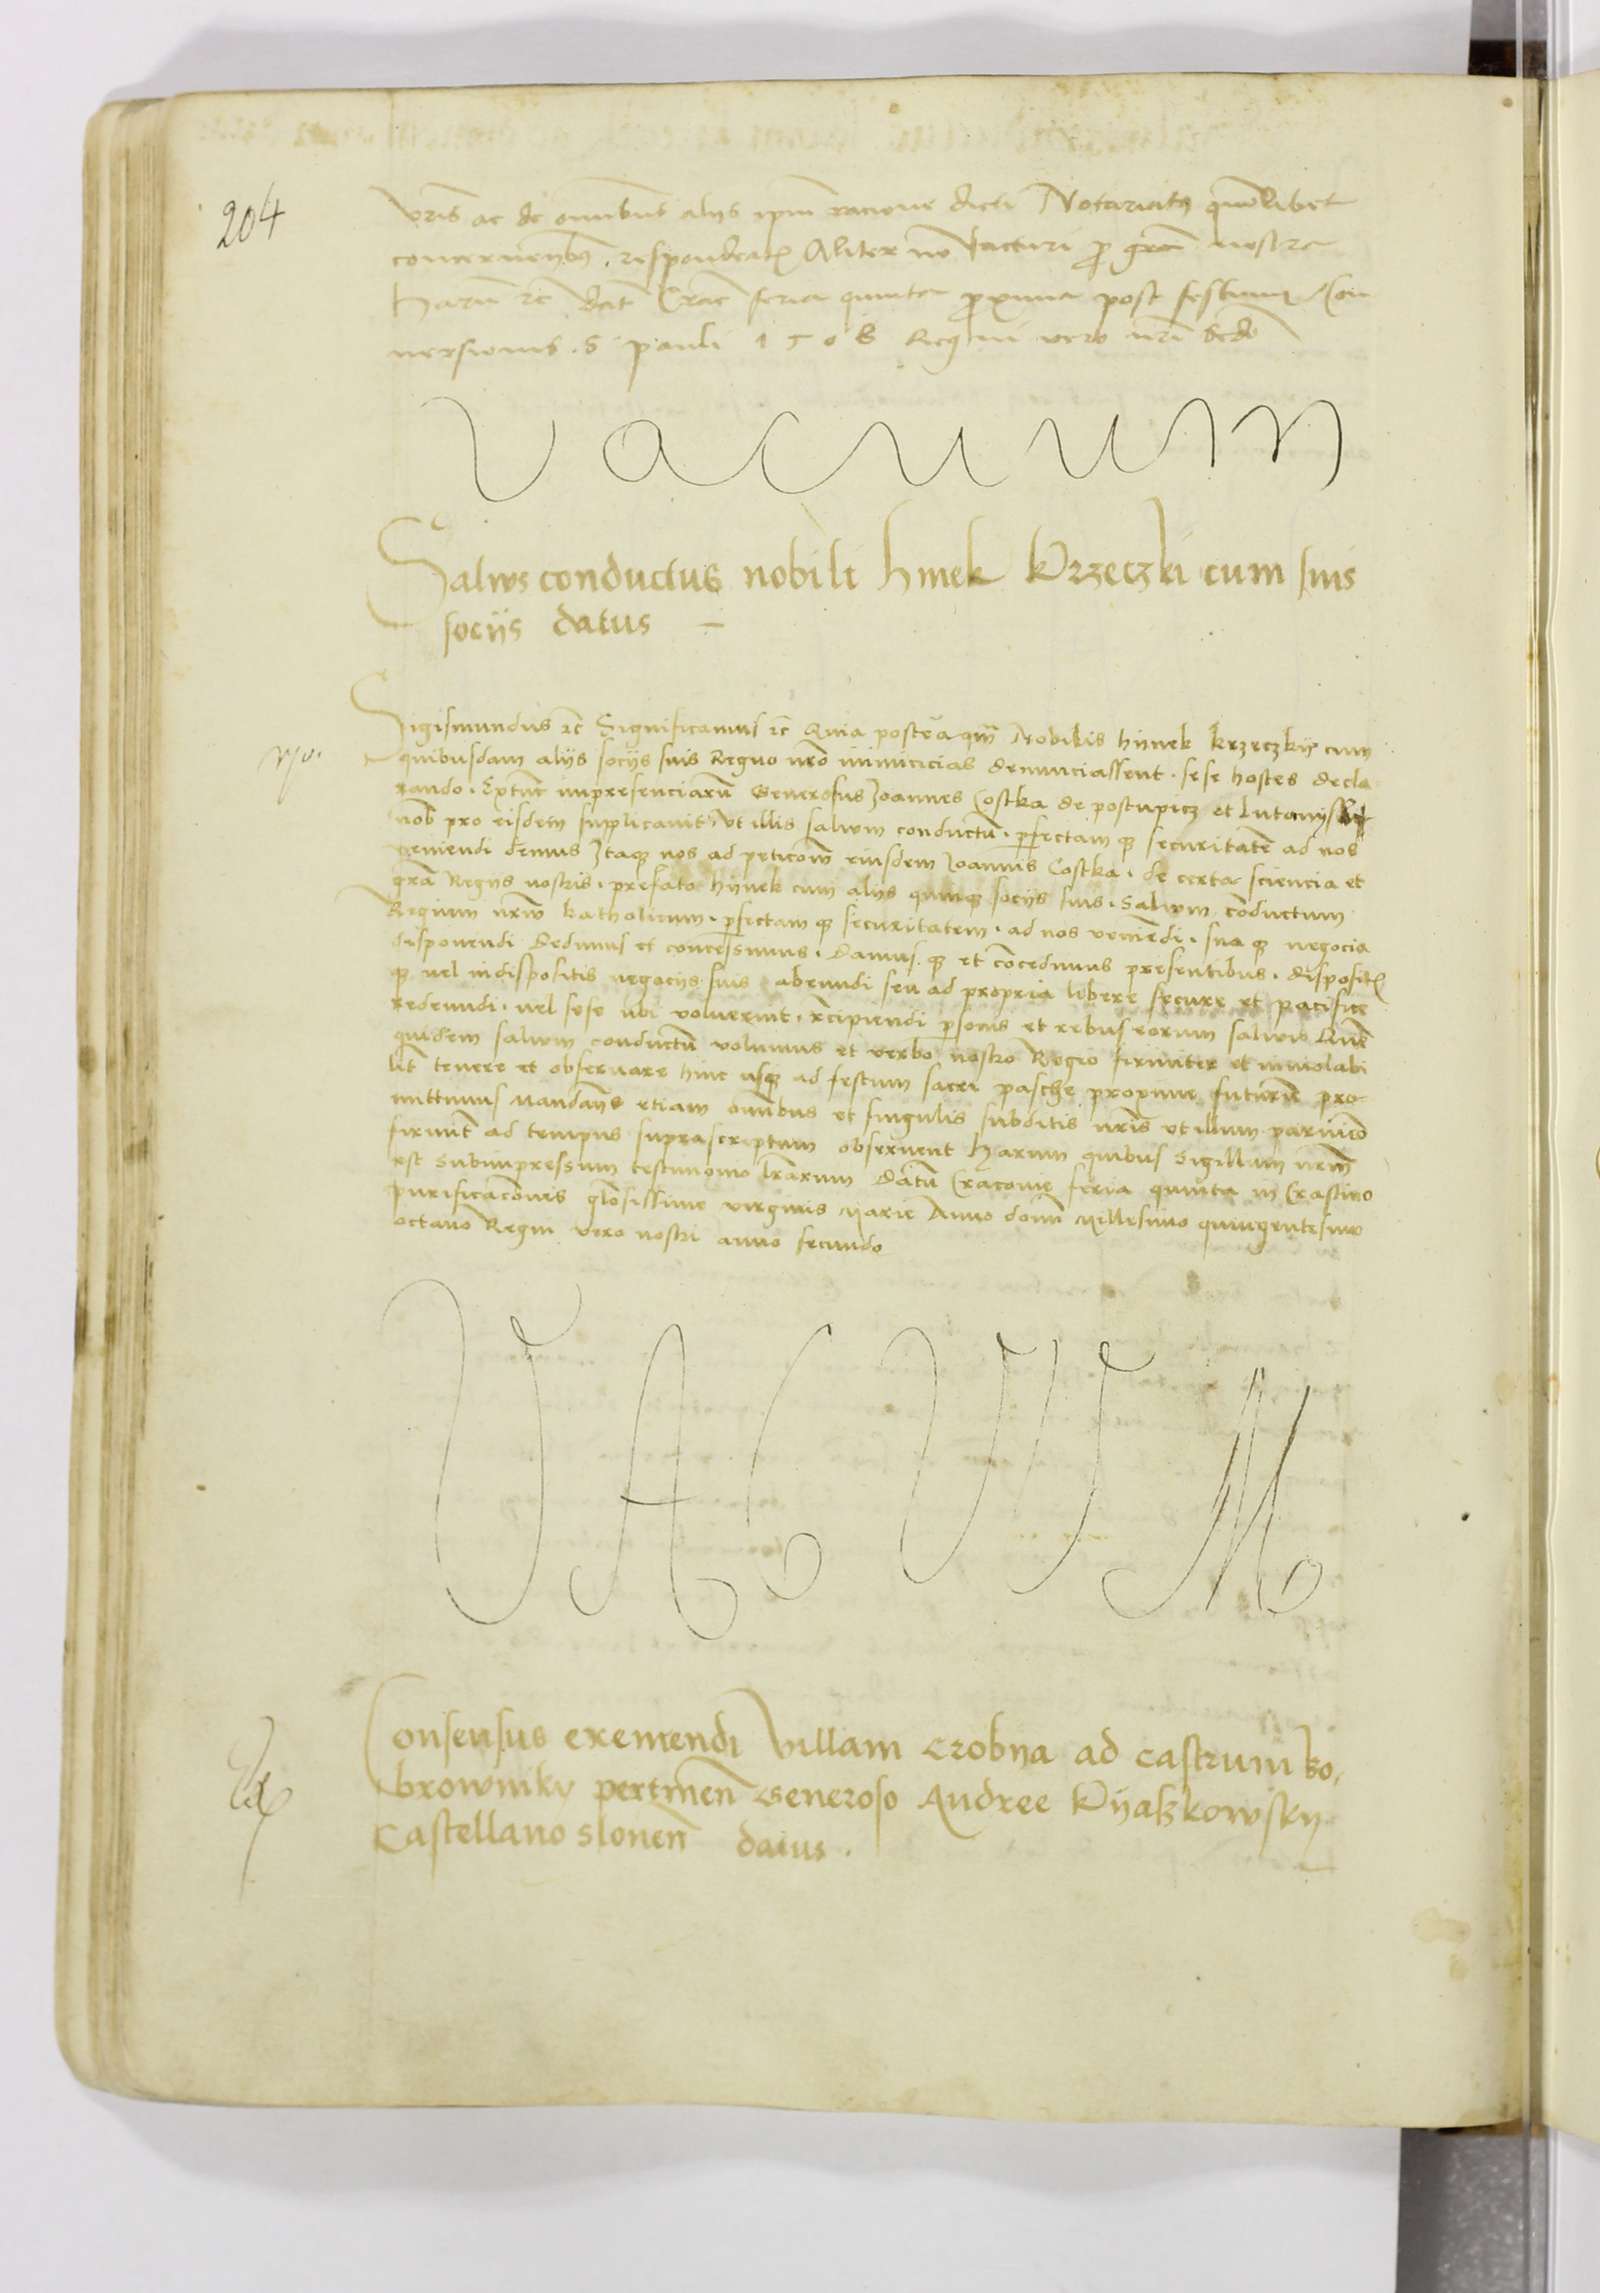 204
vris ac de omnibus alijs ipm racione dicti Notariatus quomolibet
concernentibus, respondeatis Aliter no facturi pro gra nostra
Harum etc Dat Crac feria quinta proxima post festum Con
versionis . S pauli 1508 Regni vero nri Scdo
vacuum
Salwsconductus nobili Hinek Krzeczki cum suis
socijs datus
Sigismundus etc Significamus etc Quia posteaqm Nobilis hijnek krzeczkij cum
quibusdam alijs socijs suis Regno nro inimicicias denunciassent . sese hostes decla
rando . Extunc impresenciarum Generosus Joannes Costka de postupicz et
nob pro eisdem suplicauit Vt illis salwm conductu . perfectam que securitate ad nos
veniendi demus Itaque nos ad peticiom eiusdem Joannis Costka . de certa sciencia et
gra Regijs nostris . prefato hijnek cum alijs quinque socijs suis . Salwm conductum
Regium nrm katholicum . perfectam que securitatem . ad nos veniendi . sua que negocia
disponendi Dedimus et concessimus . Damus que et concedimus presentibus . dispositis
que vel indispositis negocijs suis abeundi seu ad propria libere secure et pacifice
redeundi . vel sese ubi voluerint . recipiendi personis et rebus eorum saluis Que
quidem salwm conductu volumus et verbo nostro Regio firmiter et inuiolabi
lit tenere et obseruare hinc usque ad festum sacri pasche proxime futurum pro
mittimus Mandans etiam omibus et singulis subditis nris ut illum
firmit ad tempus suprascriptum obseruent Harum quibus Sigillum nrm
est Subimpressum testimonio lrarum Datu Cracovie feria quinta in Crastino
purificacionis gloosissime virginis Marie Anno domi Millesimo quingentesimo
octauo Regni vero nostri anno secundo
VACUUM
Consensus exemendi Villam Crobya ad castrum bo,
browniky pertinen Generoso Andree Kijaszkowsky
Castellano Slonen datus .